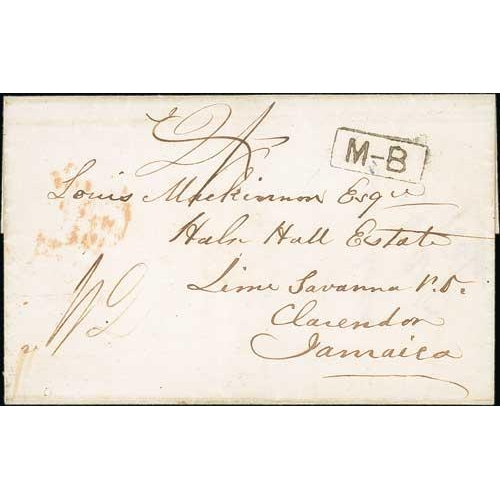 M-B
Louis Mackinnon Esqre
Halse Hall Estate
Lime Savanna P.O.
Clarendon
Jamaica